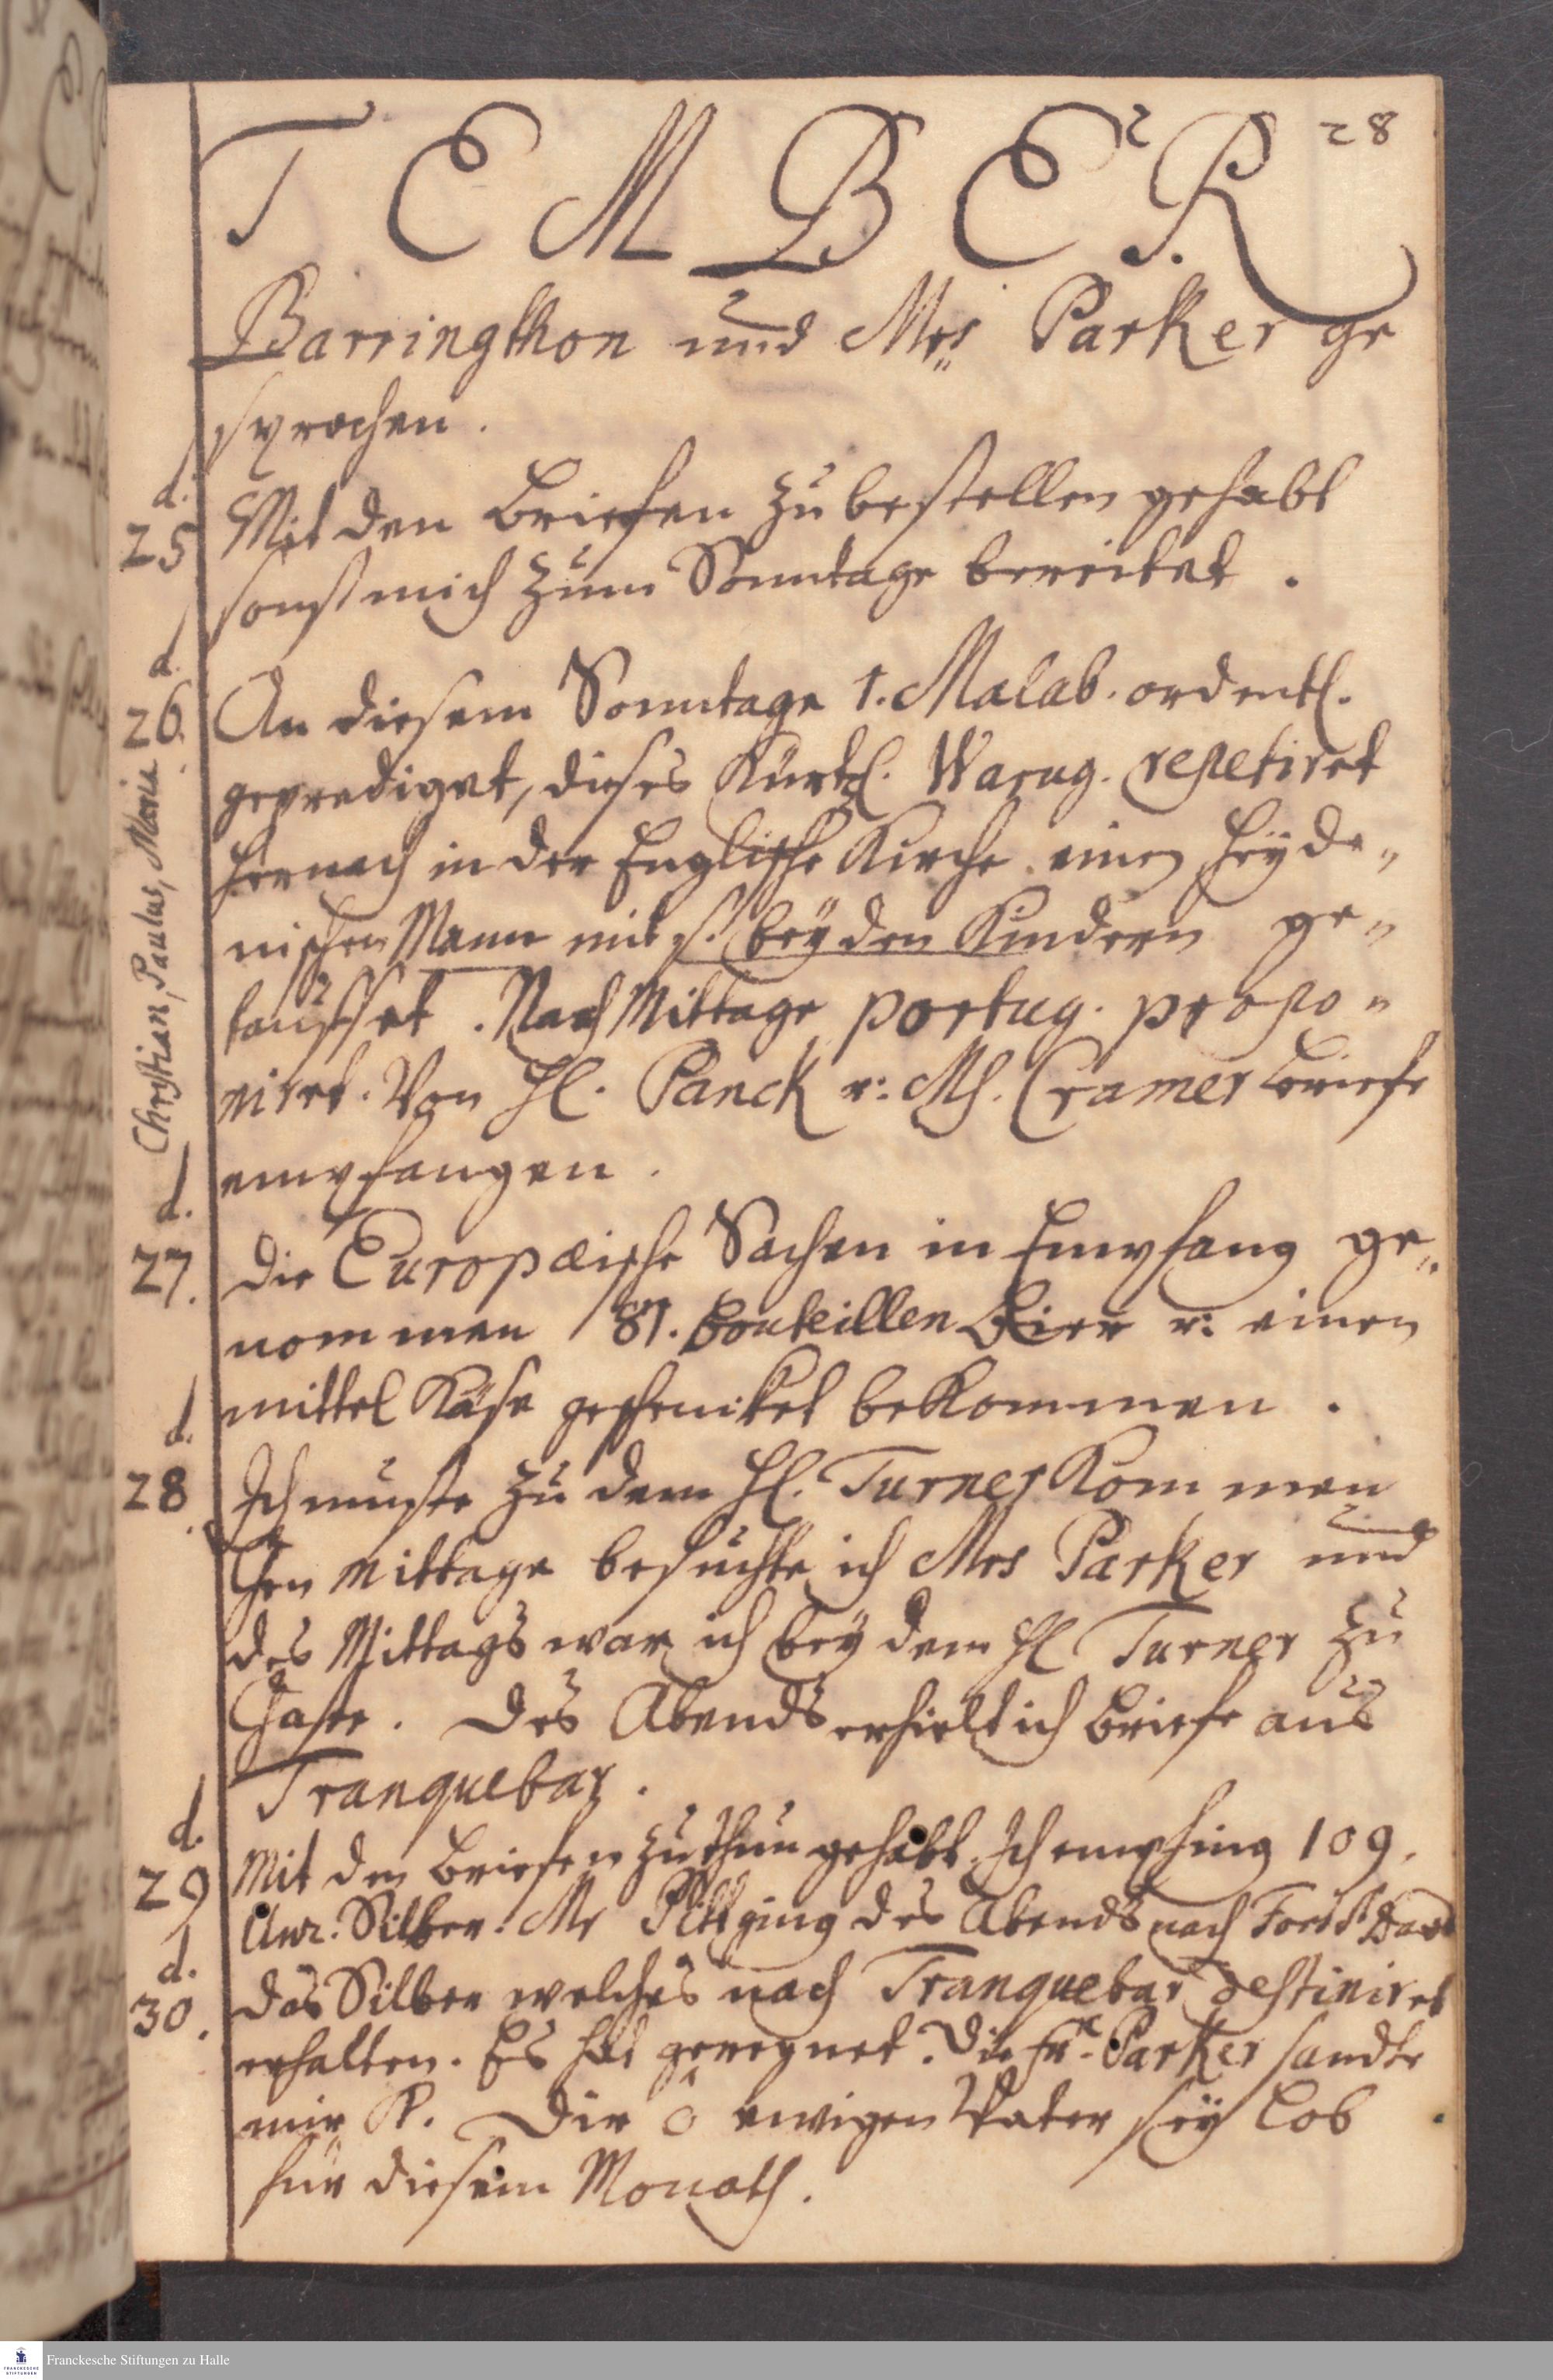 28
TEMBER.
Barringthon und Mrs Parker ge
sprochen.
d. 25 Mit den Briefen zu bestellen gehabt
sonst mich zum Sonntage bereitet.
d. 26. An diesem Sonntage 1. Malab. ordentl.
geprediget, dieses Kürtzl. Warug. repetiret
hernach in der Englische Kirche einen heyde-
nischen Mann mit s. beyden Kindern ge-
tauffet. Nach Mittage portug. propo-
niret. Von H. Panck u: Ms. Cramer Briefe
empfangen.
Christian, Paulus, Maria
d. 27. Die Europæische Sachen in Empfang ge-
nommen 81. Bouteillen Bier u: einen
mittel Käse geschencket bekommen.
d. 28. Ich muste zu dem H. Turner Kommen
mittage besuchte ich Mrs Parker und
des Mittags war ich bey dem H Turner zu
Gaste. Des Abends erhielt ich Briefe aus
Tranquebar.
d. 29 Mit den Briefen zu thun gehabt. Ich empfing 109.
Silber. Mr Pitt ging des Abends nach Fort St David
d. 30. Das Silber welches nach Tranquebar destiniret
erhalten. Es hat geregnet. Die Fr. Parker sandte
mir R. Dir ô ewigen Vater sey Lob
für diesem Monath.
Franckesche Stiftungen zu Halle
FRANCKESCHE STIFTUNGEN